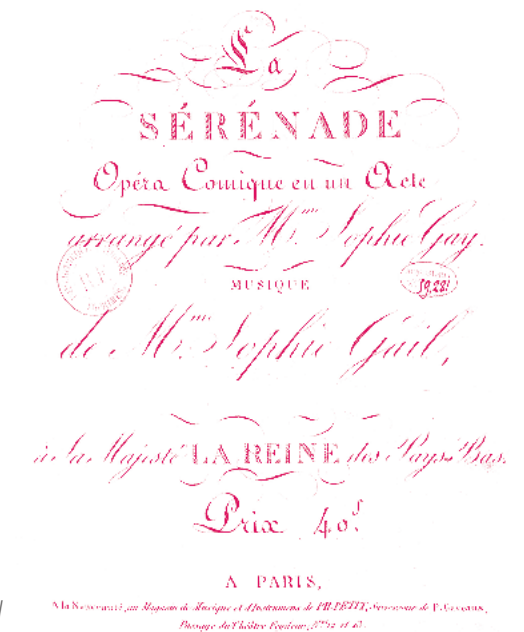 La
SÉRÉNADE
Opéra Comique en un Acte
arrangé par M.me Sophie Gay.
MUSIQUE
19,228
de M.me Sophie Gail,
à Sa Majesté LA REINE des Pays Bas.
Prix 40f
A PARIS,
A la Nouveauté, au Magasin de Musique et d'Instrumens de PH. PETIT, Successeur de P. Gaveaux,
Passage du Théâtre Feydeau, N.os 12 et 13.